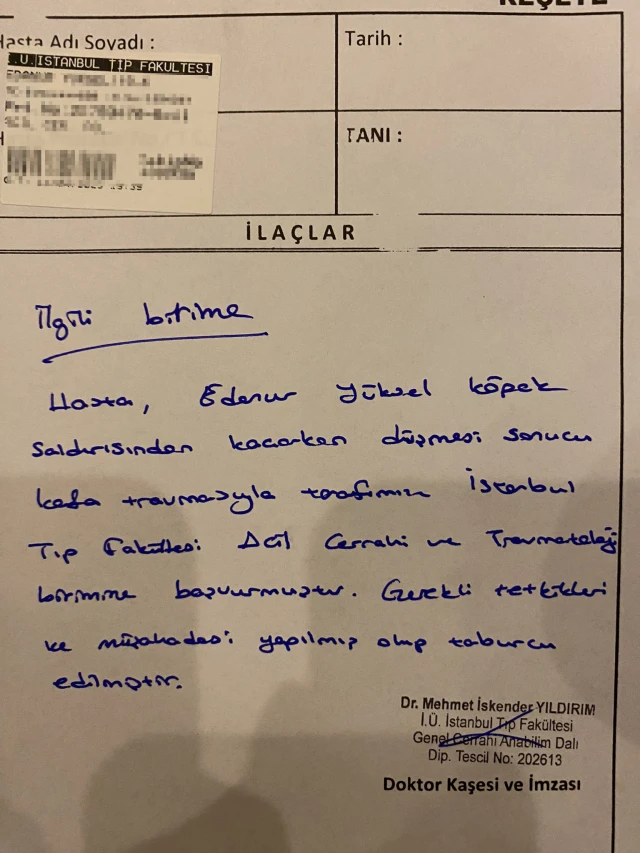 REÇETE
Hasta Adı Soyadı :
Tarih :
İ.Ü.İSTANBUL TIP FAKÜLTESİ
TANI :
İLAÇLAR
İlgili birime
Hasta, Edanur Yüksel köpek
saldırısından kaçarken düşmesi sonucu
kafa travmasıyla tarafımıza İstanbul
Tıp Fakültesi Acil Cerrahi ve Travmatoloji
birimine başvurmuştur. Gerekli tetkikleri
ve müşahadesi yapılmış olup taburcu
edilmiştir.
Dr. Mehmet İskender YILDIRIM
İ.Ü. İstanbul Tıp Fakültesi
Genel Cerrahi Anabilim Dalı
Dip. Tescil No: 202613
Doktor Kaşesi ve İmzası